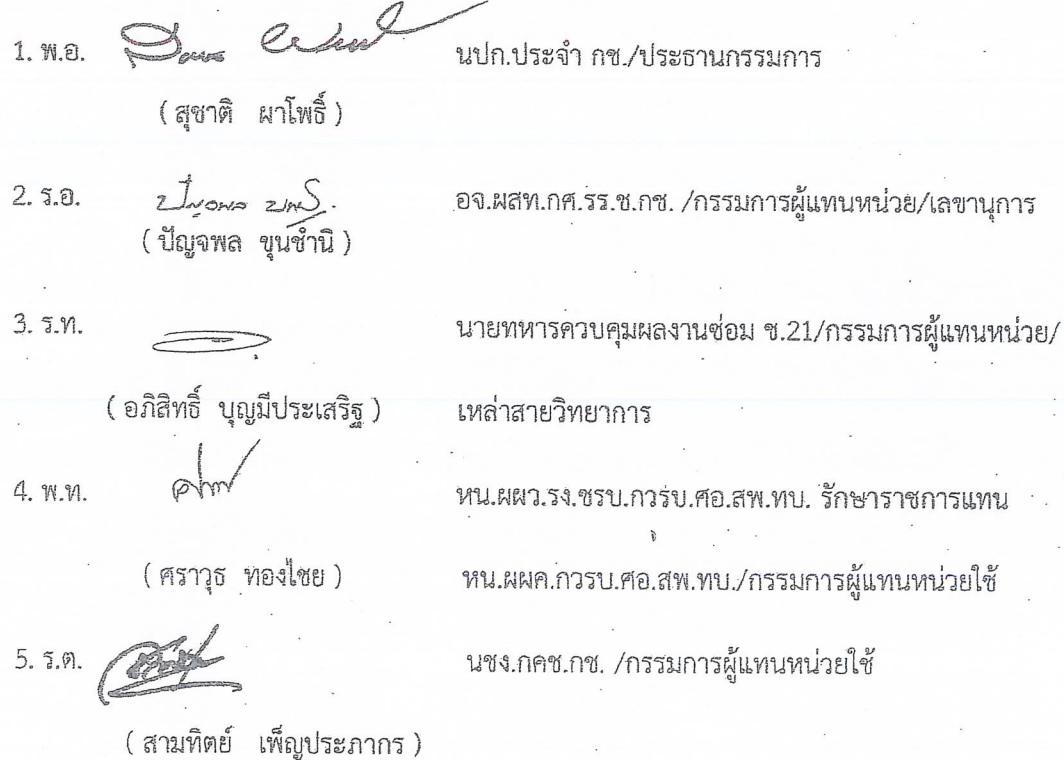 1. พ.อ. นปก.ประจำ กช./ประธานกรรมการ
( สุชาติ ผาโพธิ์ )
2. ร.อ. อจ.ผสท.กศ.รร.ช.กช. /กรรมการผู้แทนหน่วย/เลขานุการ
( ปัญจพล ขุนชำนิ )
3. ร.ท. นายทหารควบคุมผลงานซ่อม ช.21/กรรมการผู้แทนหน่วย/
( อภิสิทธิ์ บุญมีประเสริฐ ) เหล่าสายวิทยาการ
4. พ.ท. หน.ผผว.รง.ซรบ.กวรบ.ศอ.สพ.ทบ. รักษาราชการแทน
( ศราวุธ ทองไชย ) หน.ผผค.กวรบ.ศอ.สพ.ทบ./กรรมการผู้แทนหน่วยใช้
5. ร.ต. นชง.กคช.กช. /กรรมการผู้แทนหน่วยใช้
( สามทิตย์ เพ็ญประภากร )